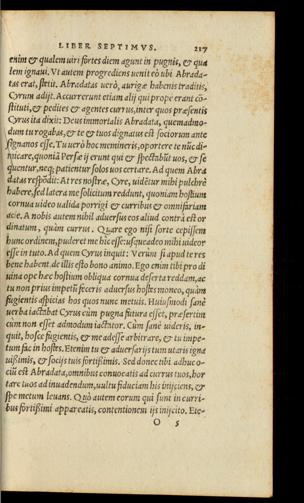 LIBER SEPTIMVS. 217
enim & qualem uiri fortes diem agunt in pugnis, & qua
lem ignaui. Vt autem progrediens uenit eò ubi Abrada-
tas erat, stetit. Abradatas uerò, aurigæ habenis traditis,
Cyrum adijt. Accurrerunt etiam alij qui propè erant cō-
stituti, & pedites & agentes currus, inter quos præsentis
Cyrus ita dixit: Deus immortalis Abradata, quemadmo-
dum tu rogabas, & te & tuos dignatus est sociorum ante
signanos esse. Tu uerò hoc memineris, oportere te nūc di-
micare, quoniā Persæ ij erunt qui & spectabūt uos, & se
quentur, neq; patientur solos uos certare. Ad quem Abra
datas respōdit: At res nostræ, Cyre, uidētur mihi pulchrè
habere, sed latera me solicitum reddunt, quoniam hostium
cornua uideo ualida porrigi & curribus & omnifariam
acie. A nobis autem nihil aduersus eos aliud contrà est or
dinatum, quàm currus. Quare ego nisi sorte cepissem
hunc ordinem, puderet me hîc esse: usqueadeo mihi uideor
esse in tuto. Ad quem Cyrus inquit: Verùm si apud te res
bene habent, de illis esto bono animo. Ego enim tibi pro di
uina ope hæc hostium obliqua cornua deserta reddam, ac
tu non prius impetū feceris aduersus hostes moneo, quàm
fugientis aspicias hos quos nunc metuis. Huiusmodi sanè
uerba iactabat Cyrus cùm pugna futura esset, præsertim
cùm non esset admodum iactator. Cùm sanè uideris, in-
quit, hosce fugientis, & me adesse arbitrare, & tu impe-
tum fac in hostes. Etenim tu & aduersarijs tum utaris igna
uissimis, & socijs tuis fortissimis. Sed donec tibi adhuc o-
ciū est Abradata, omnibus conuocatis ad currus tuos, hor
tare tuos ad inuadendum, uultu fiduciam his inijciens, &
spe metum leuans. Quò autem eorum qui sunt in curri-
bus fortissimi appareatis, contentionem ijs inijcito. Ete-
O 5